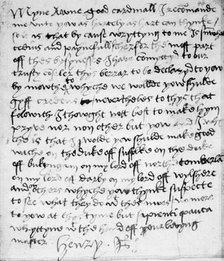 Myne awne good cardinall I recomande
me unto yow as hartely as hart can thynke
So it is that by cause wryttyng to me is sumwhat
tedius and paynefull therfor the most part
off thes bysynesses I have commyttyd to our
trusty counseler thys berrar to be declaryd to yow
by mowthe whyche we wolde yow shulde
gyff credens neverthelesse to thys that
folowith I thought nott best to make hym
pryve nor non other but yow and I whyche
is that I wolde yow shulde make good
wache on the duke off suffolke on the duke
off bukyngam on my lord off northe omberland
on my lord off darby on my lord off wylshere
and on others whyche yow thynke suspecte
to see what they do
no more to yow at thys tyme but
wryttyn with the hand off your lovyng
master Henry R